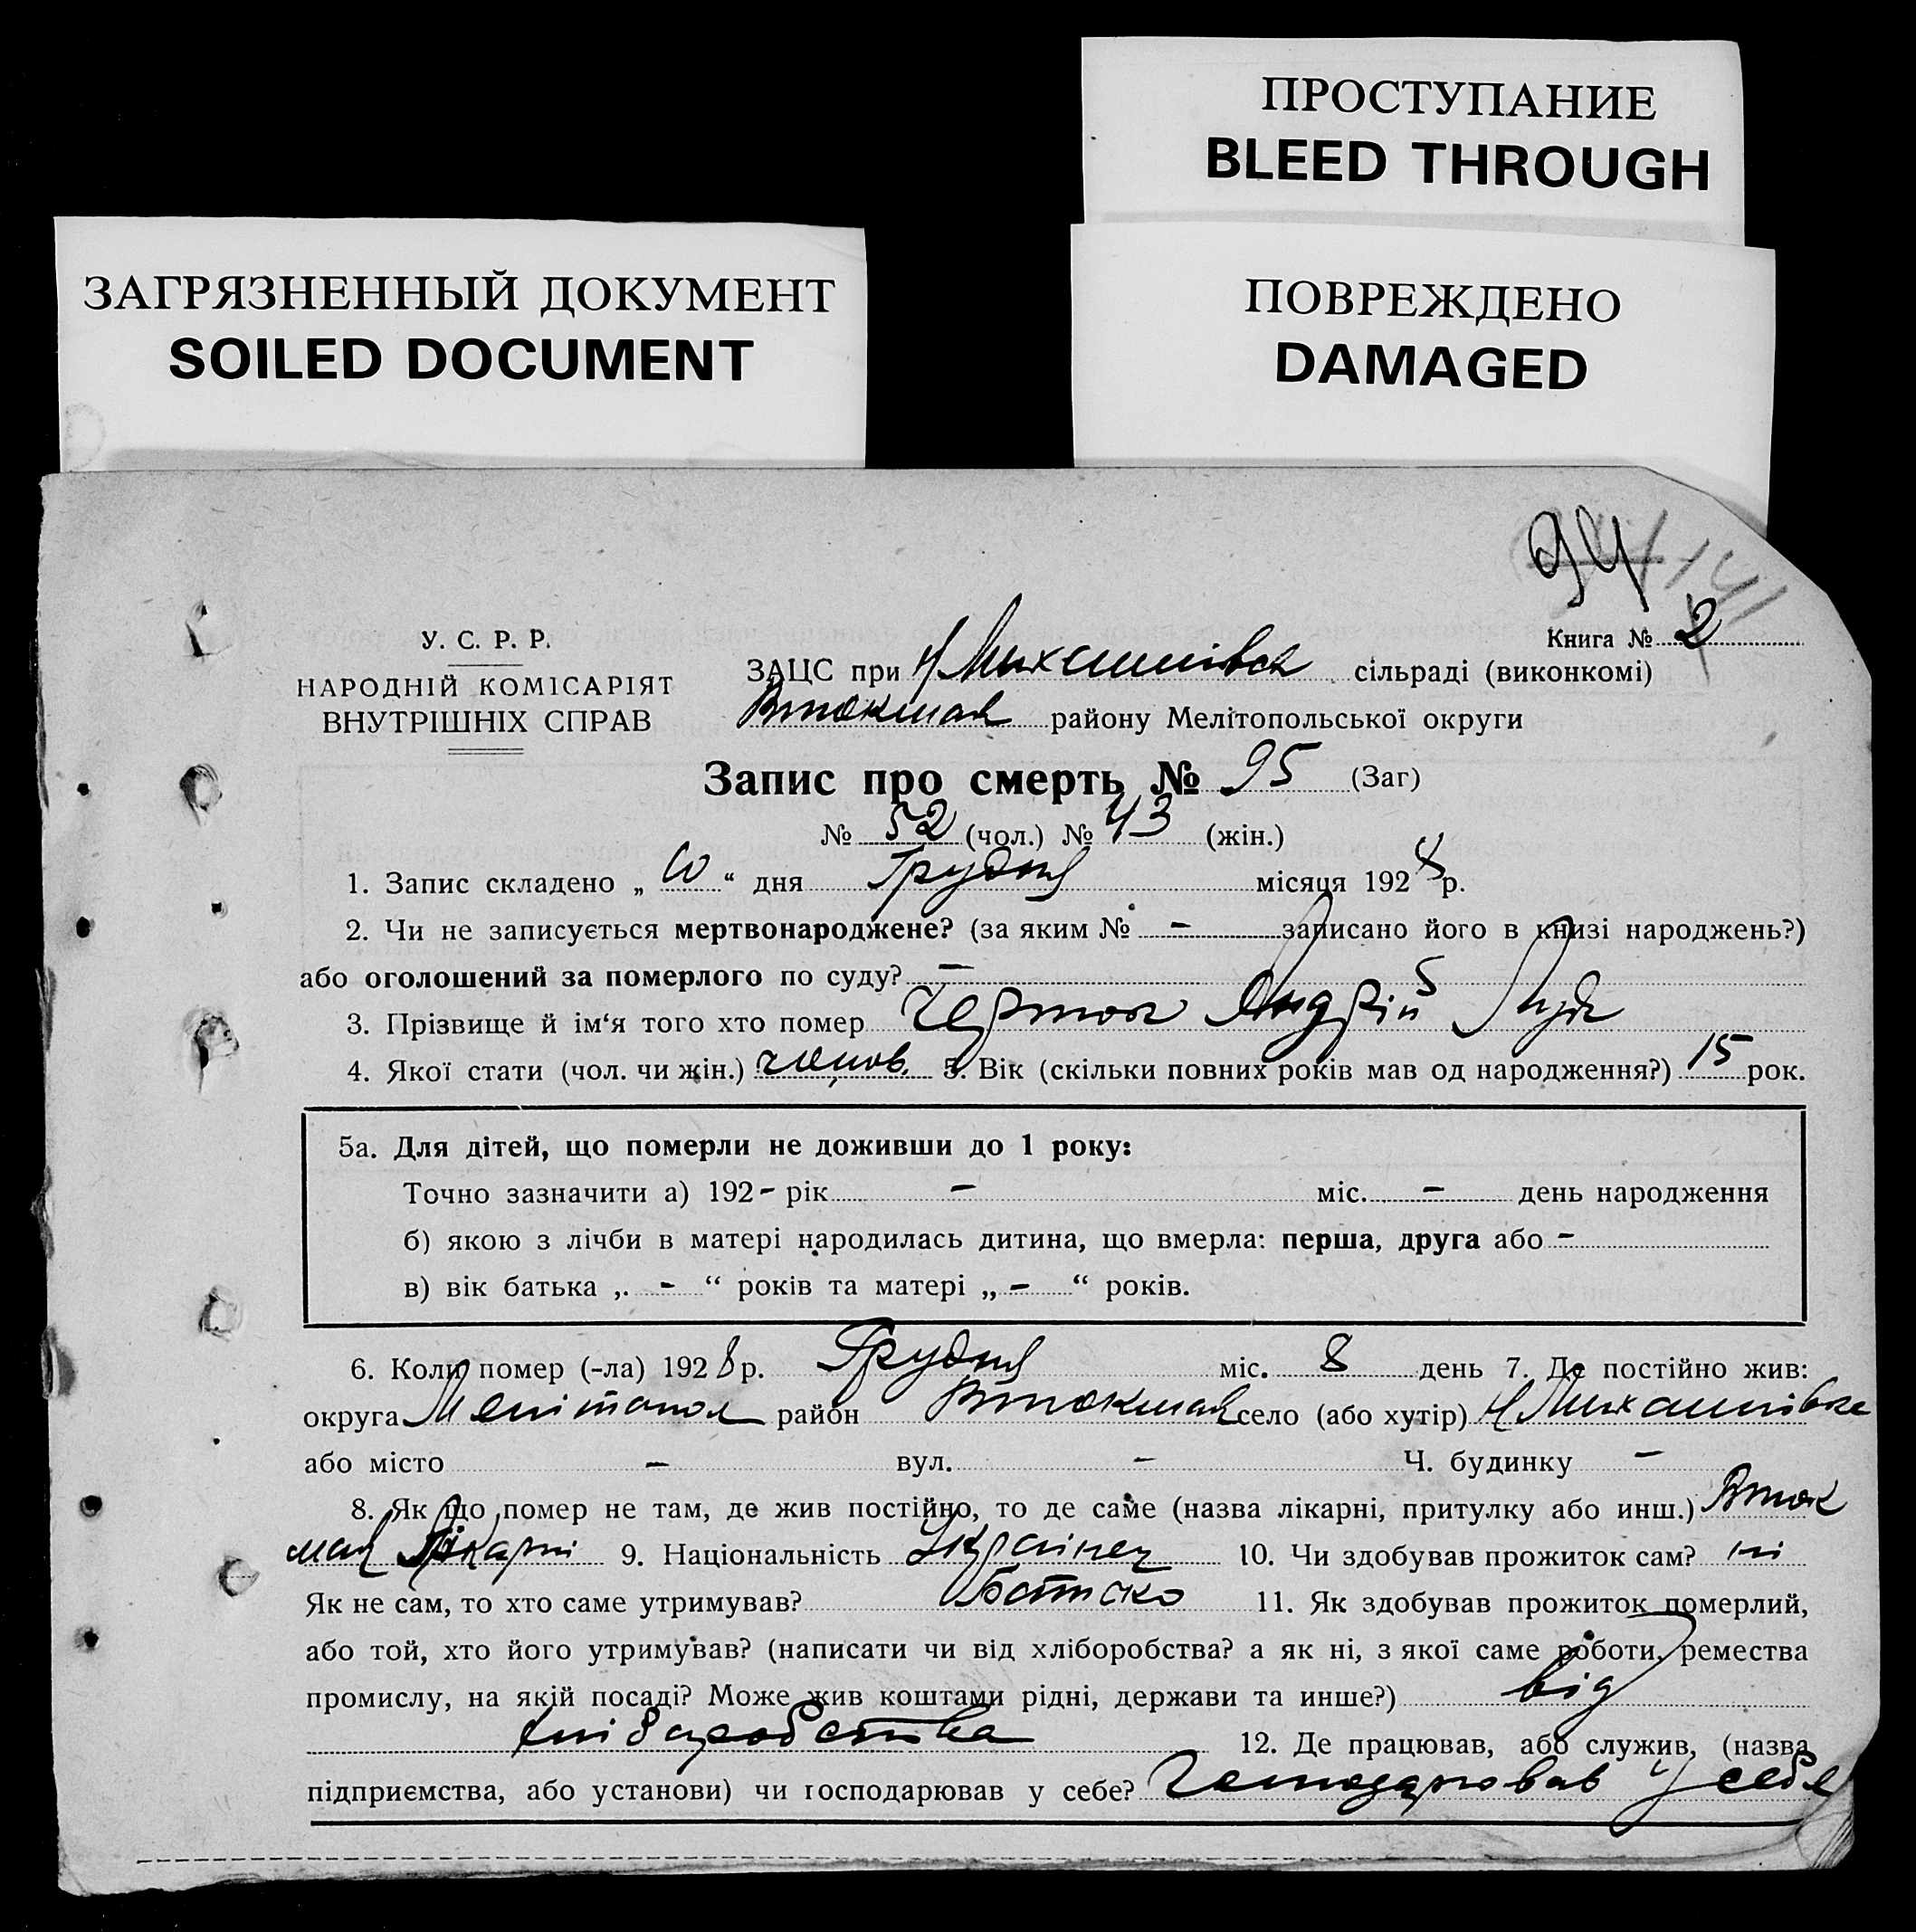 ПРОСТУПАНИЕ
BLEED THROUGH
ЗАГРЯЗНЕННЫЙ ДОКУМЕНТ
SOILED DOCUMENT
ПОВРЕЖДЕНО
DAMAGED
94
141
Книга № 2
У. С. Р. Р.
НАРОДНІЙ КОМІСАРІЯТ
ВНУТРІШНІХ СПРАВ
ЗАЦС при Н Михайлівськ сільраді (виконкомі)
Втокмак району Мелітопольської округи
Запис про смерть № 95 (Заг)
№ 52 (чол.) № 43 (жін.)
1. Запис складено „ 10 “ дня Грудня місяця 1928 р.
2. Чи не записується мертвонароджене? (за яким № – записано його в книзі народжень?)
або оголошений за померлого по суду? –
3. Прізвище й ім‘я того хто помер Чорток Андрій
4. Якої стати (чол. чи жін.) чолов. 5. Вік (скільки повних років мав од народження?) 15 рок.
5а. Для дітей, що померли не доживши до 1 року:
Точно зазначити а) 192 – рік – міс. – день народження
б) якою з лічби в матері народилась дитина, що вмерла: перша, друга або –
в) вік батька „ – “ років та матері „ – “ років.
6. Коли помер (-ла) 1928 р. Грудня міс. 8 день 7. Де постійно жив:
округа Мелітопол район Втокмак село (або хутір) Н Михайлівка
або місто – вул. – Ч. будинку –
8. Як що помер не там, де жив постійно, то де саме (назва лікарні, притулку або инш.) Вток
мак Лікарні 9. Національність Українец 10. Чи здобував прожиток сам? ні
Як не сам, то хто саме утримував? Батько 11. Як здобував прожиток померлий,
або той, хто його утримував? (написати чи від хліборобства? а як ні, з якої саме роботи, ремества
промислу, на якій посаді? Може жив коштами рідні, держави та инше?) від
хліборобства 12. Де працював, або служив, (назва
підприємства, або установи) чи господарював у себе? Господарював у себе